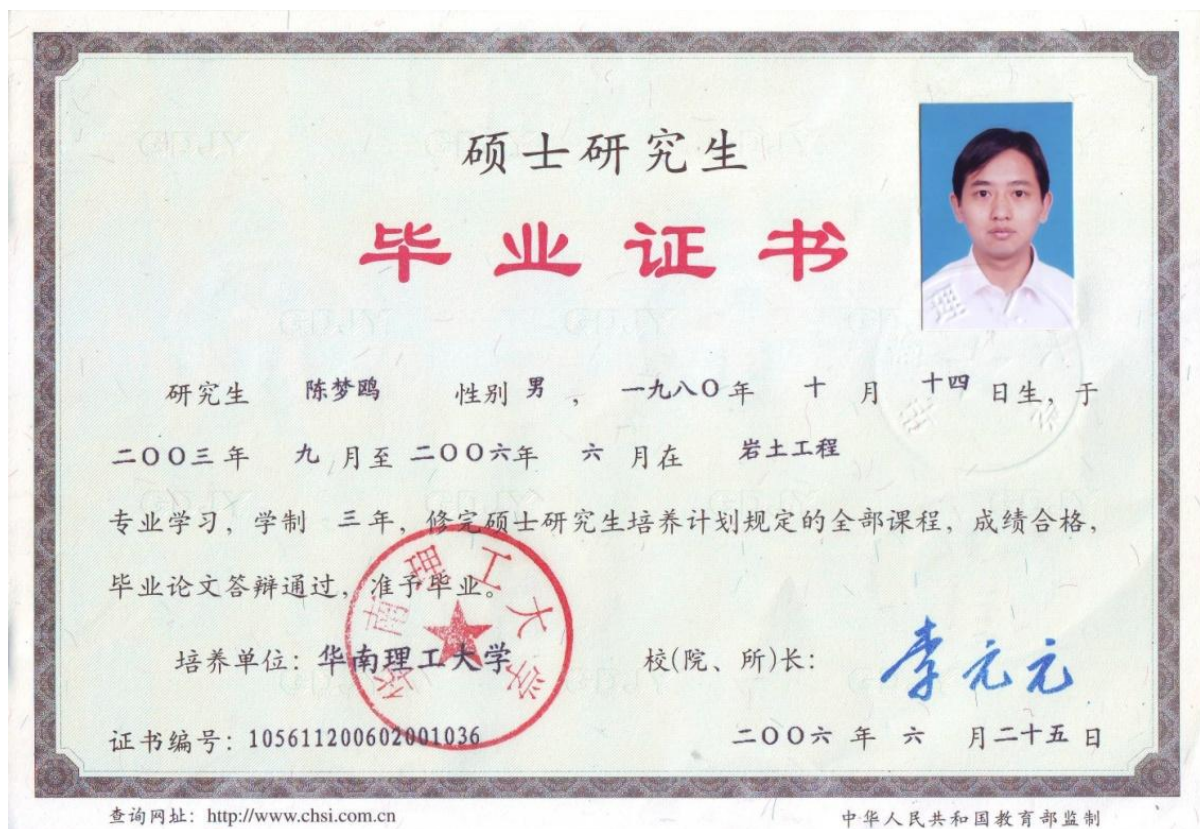 硕士研究生
毕业证书
研究生 陈梦鸥 性别 男 ， 一九八〇年 十 月 十四 日生，于
二〇〇三年 九 月至 二〇〇六年 六 月在 岩土工程
专业学习，学制 三年，修完硕士研究生培养计划规定的全部课程，成绩合格，
毕业论文答辩通过，准予毕业。
培养单位：华南理工大学 校(院、所)长：李元元
华南理工大学
证书编号：105611200602001036 二〇〇六 年 六 月二十五 日
查询网址：http://www.chsi.com.cn 中华人民共和国教育部监制